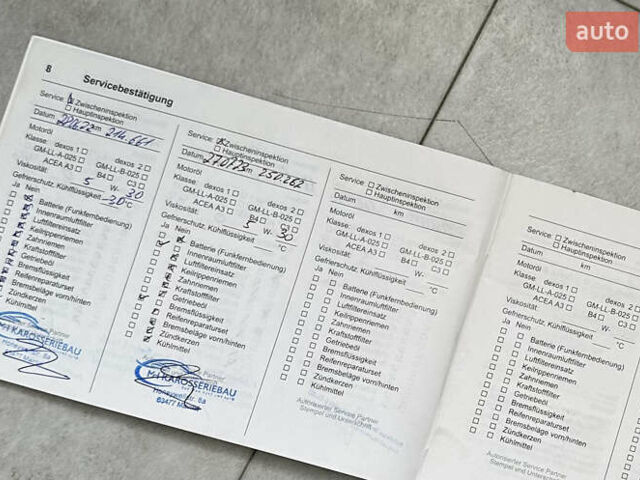 auto
8
Servicebestätigung
Service: Zwischeninspektion
Hauptinspektion
Datum km 214.661
Motoröl
Klasse: dexos 1 dexos 2
GM-LL-A-025 GM-LL-B-025
ACEA A3 B4 C3
Viskosität: 5 W- 30
Gefrierschutz, Kühlflüssigkeit -30 °C
Ja Nein
Batterie (Funkfernbedienung)
Innenraumluftfilter
Luftfiltereinsatz
Keilrippenriemen
Zahnriemen
Kraftstofffilter
Getriebeöl
Bremsflüssigkeit
Reifenreparaturset
Bremsbeläge vorn/hinten
Zündkerzen
Kühlmittel
KAROSSERIEBAU
Service: Zwischeninspektion
Hauptinspektion
Datum km 250.262
Motoröl
Klasse: dexos 1 dexos 2
GM-LL-A-025 GM-LL-B-025
ACEA A3 B4 C3
Viskosität: 5 W- 30
Gefrierschutz, Kühlflüssigkeit °C
Ja Nein
Batterie (Funkfernbedienung)
Innenraumluftfilter
Luftfiltereinsatz
Keilrippenriemen
Zahnriemen
Kraftstofffilter
Getriebeöl
Bremsflüssigkeit
Reifenreparaturset
Bremsbeläge vorn/hinten
Zündkerzen
Kühlmittel
KAROSSERIEBAU
Service: Zwischeninspektion
Hauptinspektion
Datum km
Motoröl
Klasse: dexos 1 dexos 2
GM-LL-A-025 GM-LL-B-025
ACEA A3 B4 C3
Viskosität: W-
Gefrierschutz, Kühlflüssigkeit °C
Ja Nein
Batterie (Funkfernbedienung)
Innenraumluftfilter
Luftfiltereinsatz
Keilrippenriemen
Zahnriemen
Kraftstofffilter
Getriebeöl
Bremsflüssigkeit
Reifenreparaturset
Bremsbeläge vorn/hinten
Zündkerzen
Kühlmittel
Autorisierter Service Partner
Stempel und Unterschrift
Service: Zwischeninspektion
Hauptinspektion
Datum km
Motoröl
Klasse: dexos 1 dexos 2
GM-LL-A-025 GM-LL-B-025
ACEA A3 B4
Viskosität: W-
Gefrierschutz, Kühlflüssigkeit
Ja Nein
Batterie (Funkfernbedienung)
Innenraumluftfilter
Luftfiltereinsatz
Keilrippenriemen
Zahnriemen
Kraftstofffilter
Getriebeöl
Bremsflüssigkeit
Reifenreparaturset
Bremsbeläge vorn/hinten
Zündkerzen
Kühlmittel
Autorisierter Service Partner
Stempel und Unterschrift